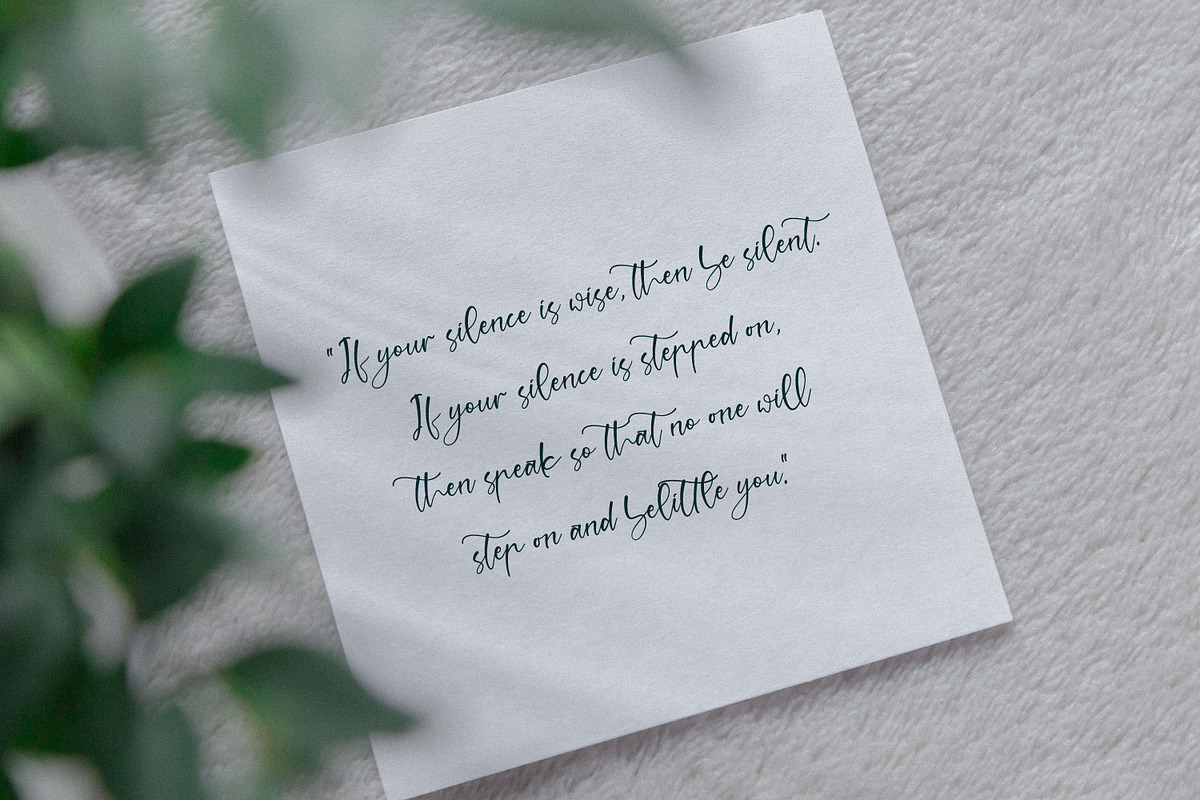 "If your silence is wise, then be silent.
If your silence is stepped on,
then speak so that no one will
step on and belittle you."